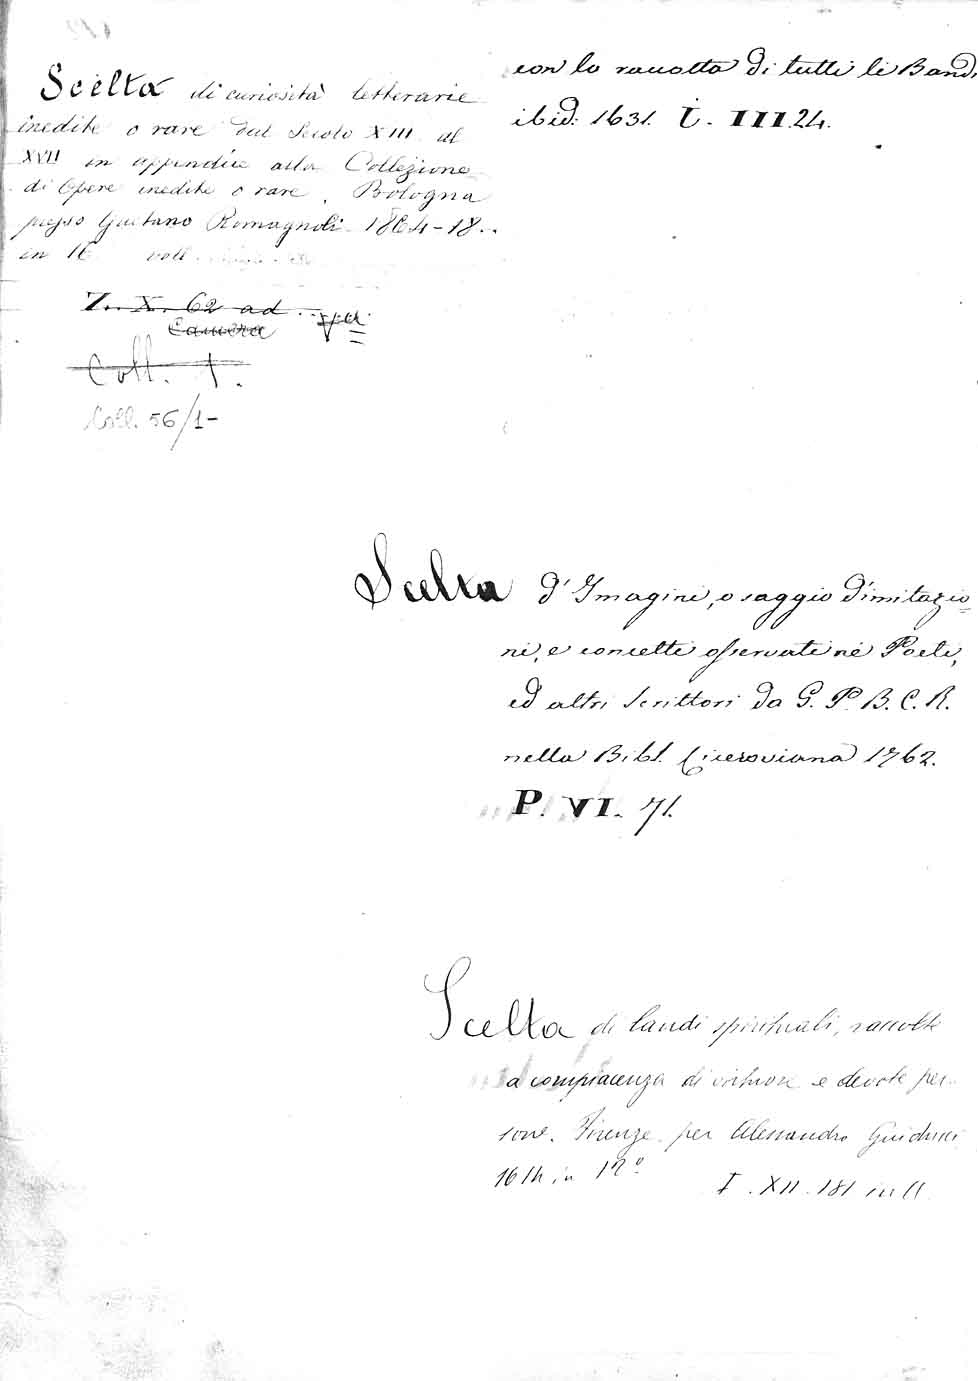 Scelta di curiosità letterarie
inedite o rare dal Secolo XIII al
XVII in appendice alla Collezione
di Opere inedite o rare. Bologna
presso Gaetano Romagnoli 1864-18..
in 16 voll.
Z. X. 62 ad
Camera
Coll. 1.
Coll. 56/1-
con la raccolta di tutti li Bandi
ibid: 1631. i. III.24.
Scelta d'Imagini, o saggio d'imitazio=
ni, e concetti osservati ne Poeti,
ed altri Scrittori da G. P. B. C. R.
nella Bibl. Ciceroviana 1762.
P. VI. 71.
Scelta di laudi spirituali, raccolte
a compiacenza di virtuose e devote per-
sone. Firenze per Alessandro Guiducci
16 in 12º
I. XII. 181